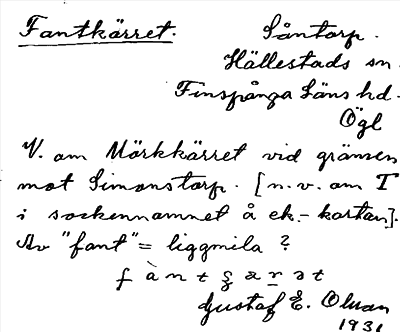 Fantkärret.
Såntorp.
Hällestads sn.
Finspånga Läns hd.
Ögl
V. om Mörkkärret vid gränsen
mot Simonstorp. [n.v. om T
i sockennamnet å ek.-kartan].
Av "fant" = liggmila?
Gustaf E. Olsson
1931